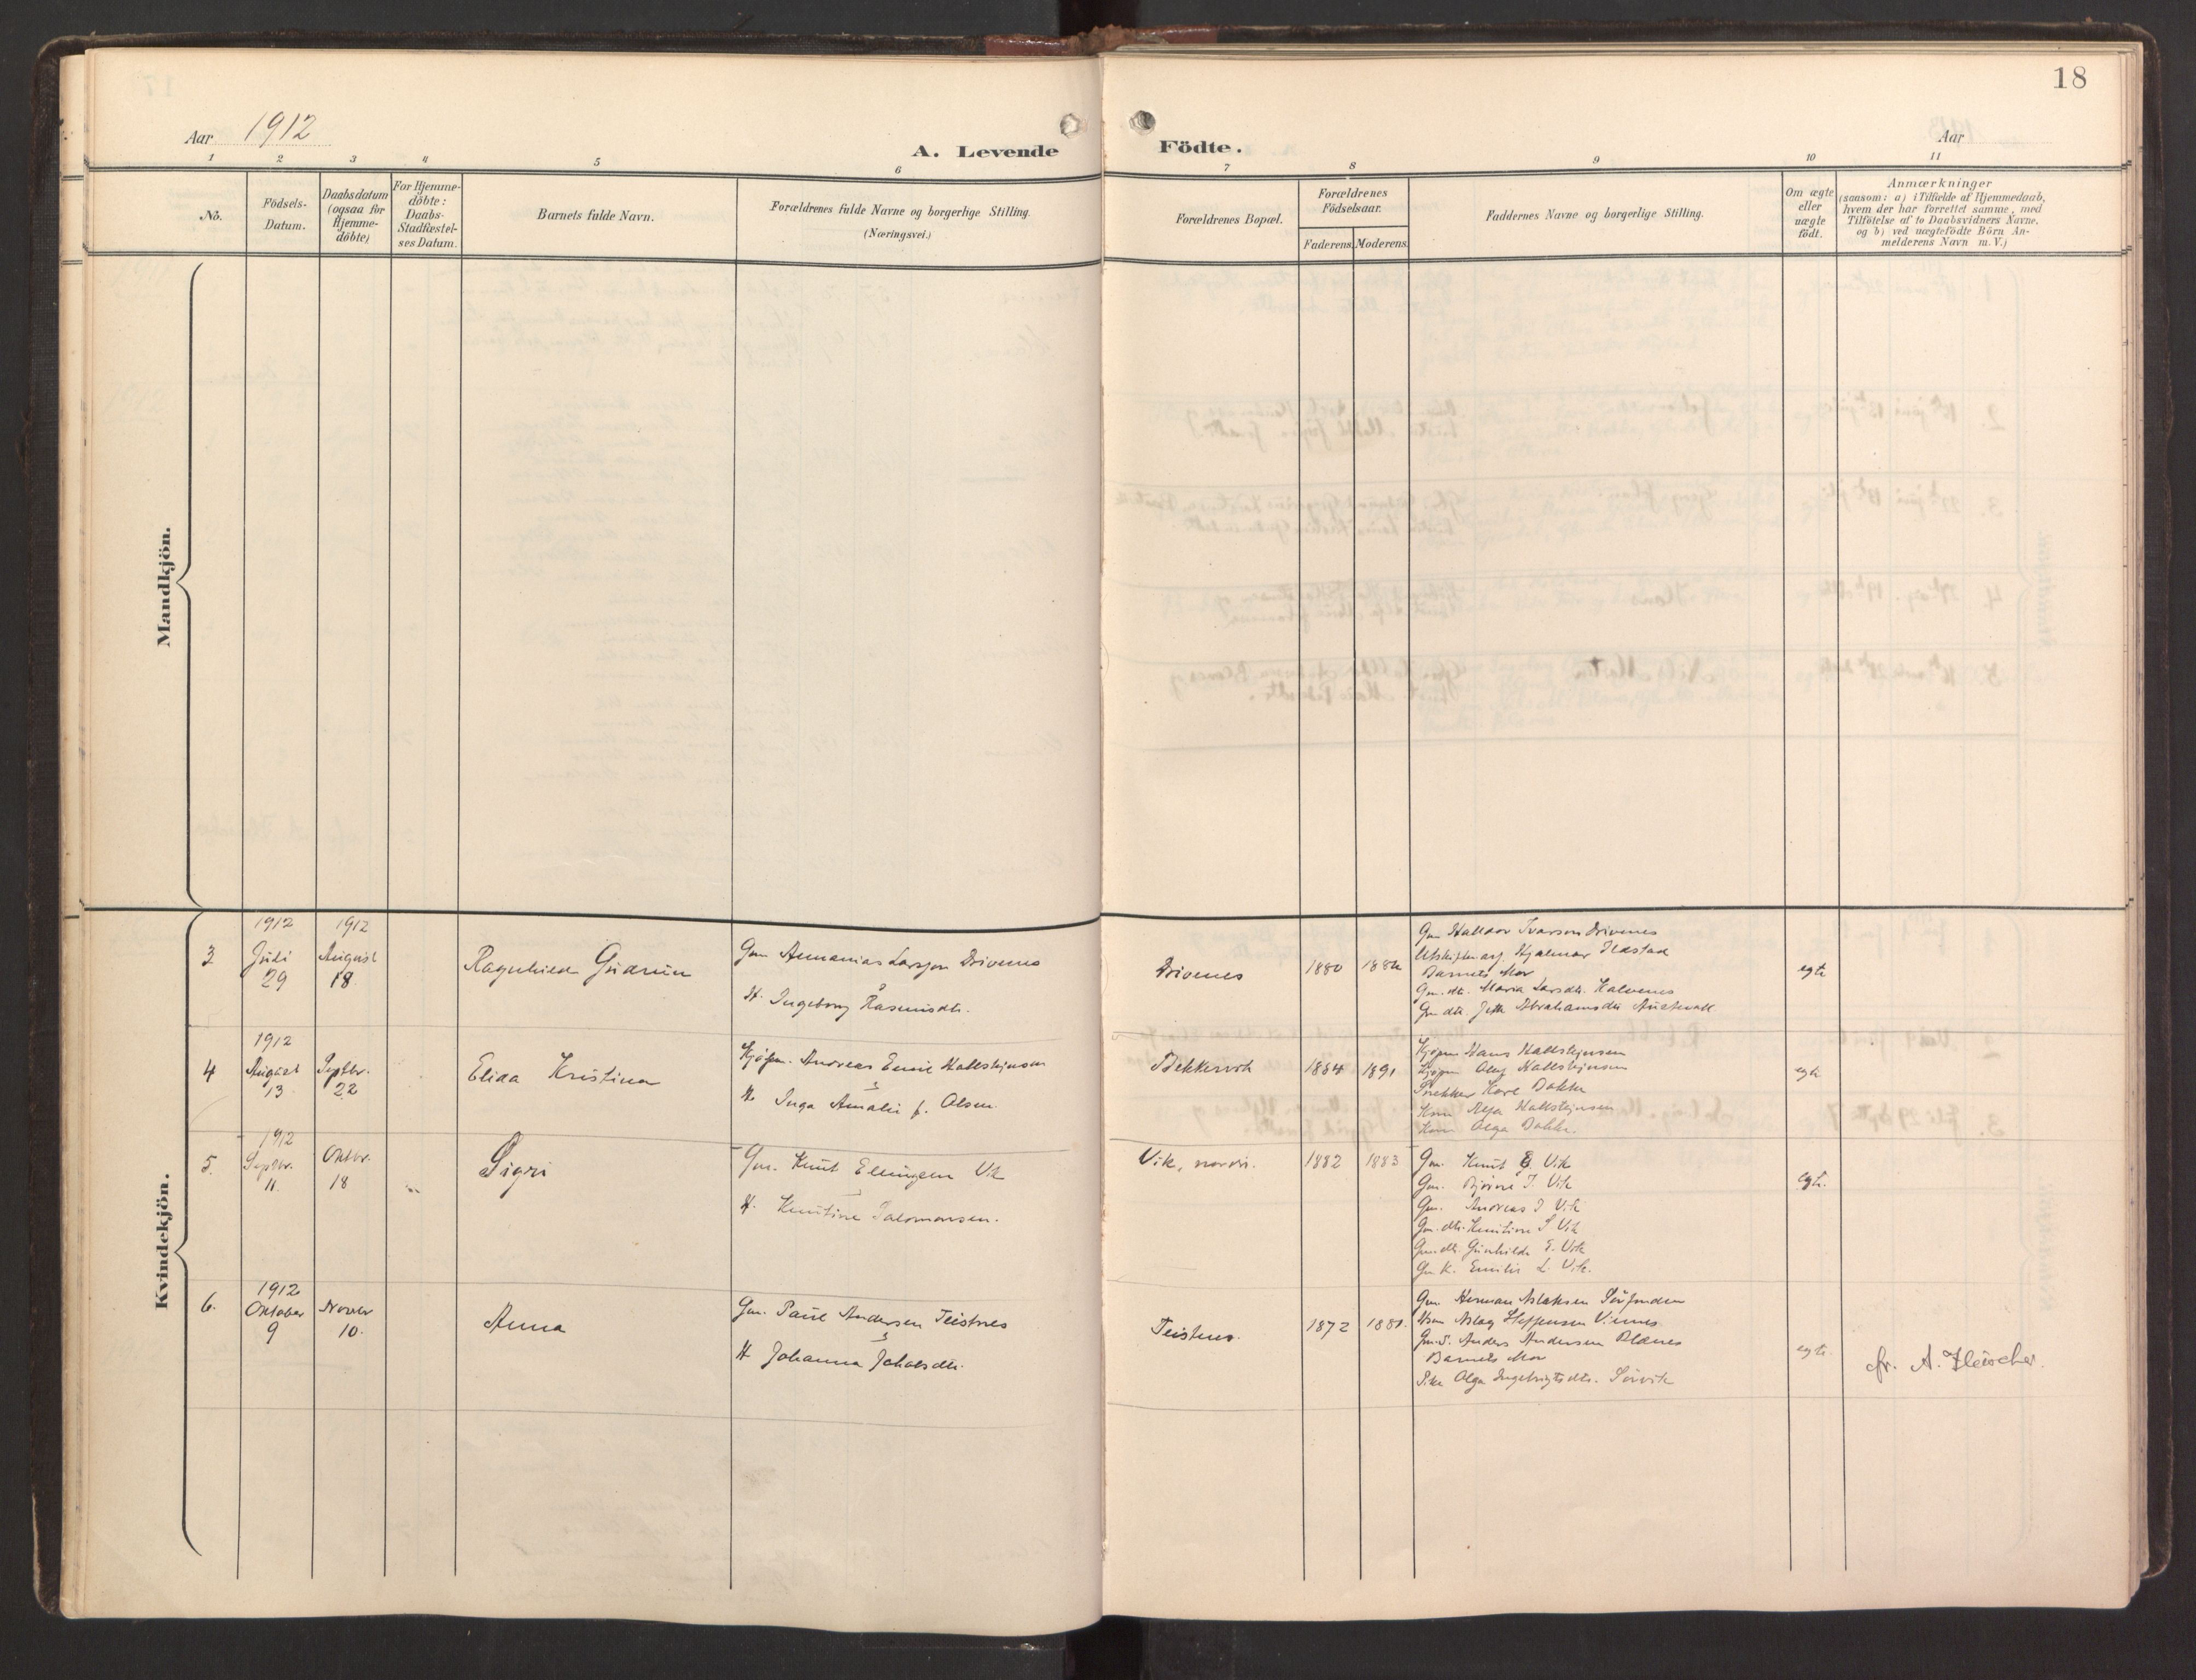 18
Aar 1912
A. Levende Födte.
Aar
1 2 3 4 5 6 7 8 9 10 11
No.
Födsels-
Datum.
Daabsdatum
(ogsaa for
Hjemme-
döbte)
For Hjemme-
döbte:
Daabs-
Stadfæstel-
ses Datum.
Barnets fulde Navn.
Forældrenes fulde Navne og borgerlige Stilling.
(Næringsvei.)
Forældrenes Bopæl.
Forældrenes
Födselsaar.
Faderens. Moderens.
Faddernes Navne og borgerlige Stilling.
Om ægte
eller
uægte
födt.
Anmærkninger
(saasom: a) i Tilfælde af Hjemmedaab,
hvem der har forrettet samme, med
Tilföielse af to Daabsvidners Navne.
og b) ved uægtefödte Börn An-
melderens Navn m. V.)
Mandkjön.
Kvindekjön.
3
1912
Juli
29
1912
August
18
Ragnhild Gudrun
Gm Annanias Larsen Drivenes
&
H. Ingeborg Rasmusdtr.
Drivenes
1880
Gm Halldor Ivarson Drivenes
Hjalmar
Barnets Mor
Gm. dtr. Maria Larsdtr. Kalvenes
Gm dtr. Abrahamsdtr Austevoll
egte
4
1912
August
13
Septbr.
22
Elida Kristina
Kjøpm. Andreas Emil Hallsteinsen
&
H. Inga Amalie f. Olsen
Bekkervik
1884 1891
Kjøpm Hans Hallsteinsen
Kjøpm Olaf Hallsteinsen
Snekker Karl Bakke
Kone Hallsteinsen
Kone Olga Bakke.
egte
5.
1912
Septbr.
11.
Oktbr.
18
Sigri
Gm. Knut Ellingsen Vik
H. Knutine Salomonsen.
Vik, nordr.
1882 1883
Gm. Knut E. Vik
Gm. Bjørne J. Vik
Gm. Andreas J Vik
Gm. dtr. Knutine S Vik
Gm. dtr. Gunhilda E. Vik
Gm K. Emilie L. Vik.
egte.
6.
1912
Oktober
9
Novbr
10.
Anna
Gm. Paul Andersen Teistnes
&
H Johanna Jakobsdtr.
Teistnes.
1872 1880.
Gm Herman Aslaksen
Aslag Steffensen Vinnes
Gm. S. Anders Andersen Blænes
Barnets Mor
Pike Olga Ingebrigtsdtr. Sørvik
egte.
fr. A. Fleischer.